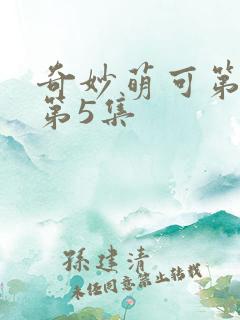 奇妙萌可第
第5集
孫建清
未经同意禁止转载